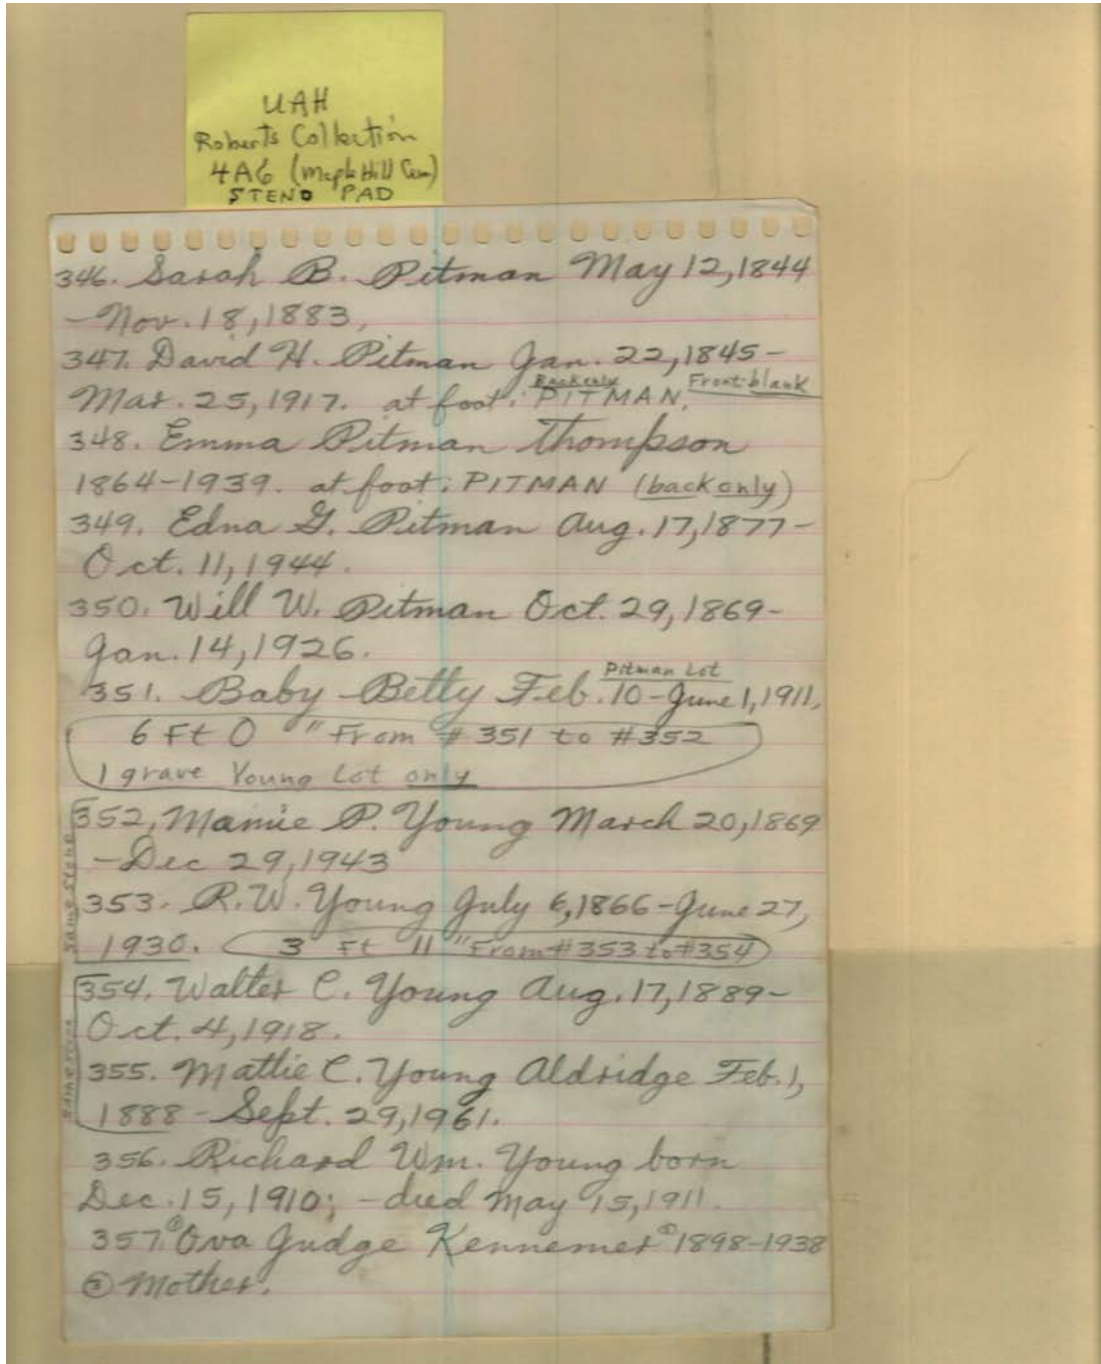 UAH
Roberts Collection
4A6 (Maple Hill Cem)
STENO PAD
346. Sarah B. Pitman May 12, 1844
- Nov. 18, 1883,
347. David H. Pitman Jan. 22, 1845-
Back only Front-blank
Mar. 25, 1917. at foot: PITMAN.
348. Emma Pitman Thompson
1864-1939. at foot: PITMAN (back only)
349. Edna G. Pitman Aug. 17, 1877-
Oct. 11, 1944.
350. Will W. Pitman Oct. 29, 1869-
Jan. 14, 1926.
Pitman Lot
351. Baby Betty Feb. 10 - June 1, 1911.
6 Ft 0 " From #351 to #352
1 grave Young Lot only
352, Mamie P. Young March 20, 1869
- Dec 29, 1943
353. R.W. Young July 6, 1866 - June 27,
1930. 3 Ft 11 " From #353 to #354
Same Stone
354. Walter C. Young Aug. 17, 1889-
Oct. 4, 1918.
355. Mattie C. Young Aldridge Feb. 1,
1888 - Sept. 29, 1961.
Same Stone
356. Richard Wm. Young born
Dec. 15, 1910; - died May 15, 1911.
357. Ova Judge Kennemer 1898-1938
Mother.